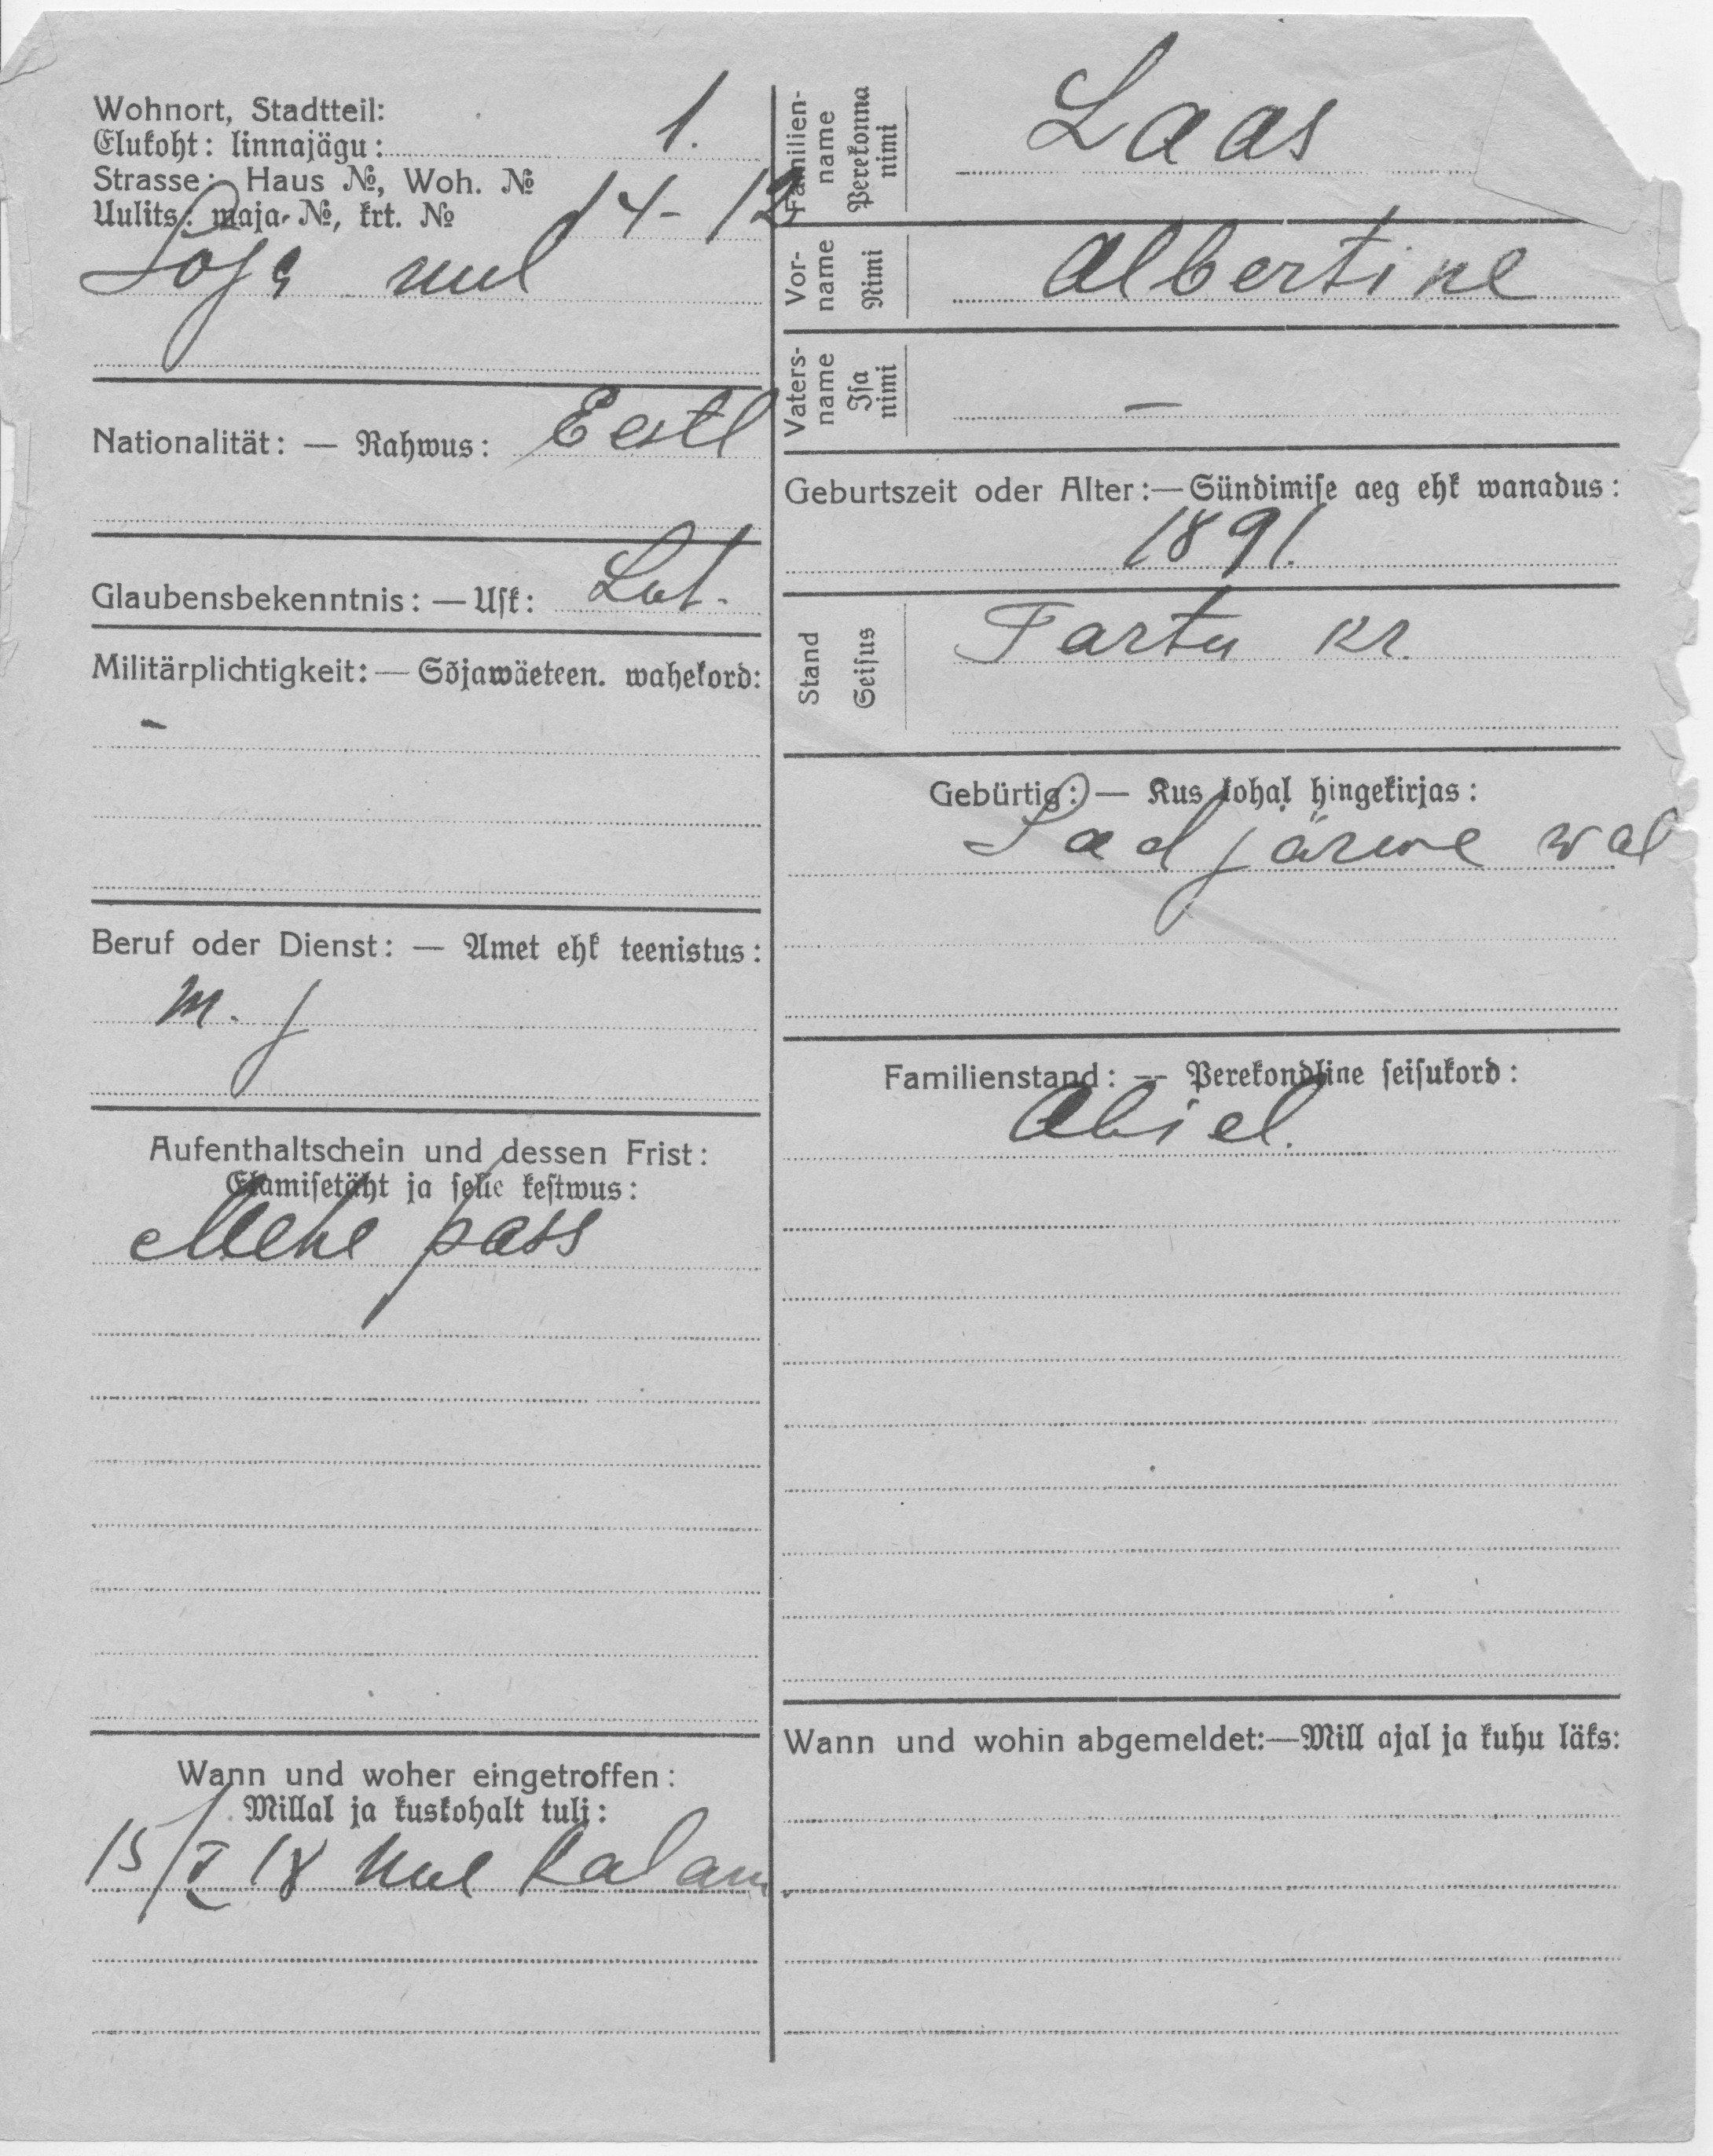 Wohnort, Stadtteil:
Elukoht: linnajägu: 1.
Strasse: Haus №, Woh. №
Uulits: maja- №, krt. № 14-12
uul
Nationalität: — Rahwus: Eestl
Glaubensbekenntnis: — Usk: Lut.
Militärplichtigkeit: — Sõjawäeteen. wahekord:
-
Beruf oder Dienst: — Amet ehk teenistus:
m. j
Aufenthaltschein und dessen Frist:
Elamisetäht ja selle kestwus:
Mehe pass
Wann und woher eingetroffen:
Millal ja kuskohalt tuli:
15/I 18 Kalam
Familien-name
Perekonna nimi
Laas
Vor-name
Nimi
Albertine
Vaters-name
Isa nimi
—
Geburtszeit oder Alter:—Sündimise aeg ehk wanadus:
1891.
Stand
Seisus
Tartu kr.
Gebürtig: — Kus kohal hingekirjas:
Sadjärwe wal
Familienstand: — Perekondline seisukord:
Abiel.
Wann und wohin abgemeldet:—Mill ajal ja kuhu läks: